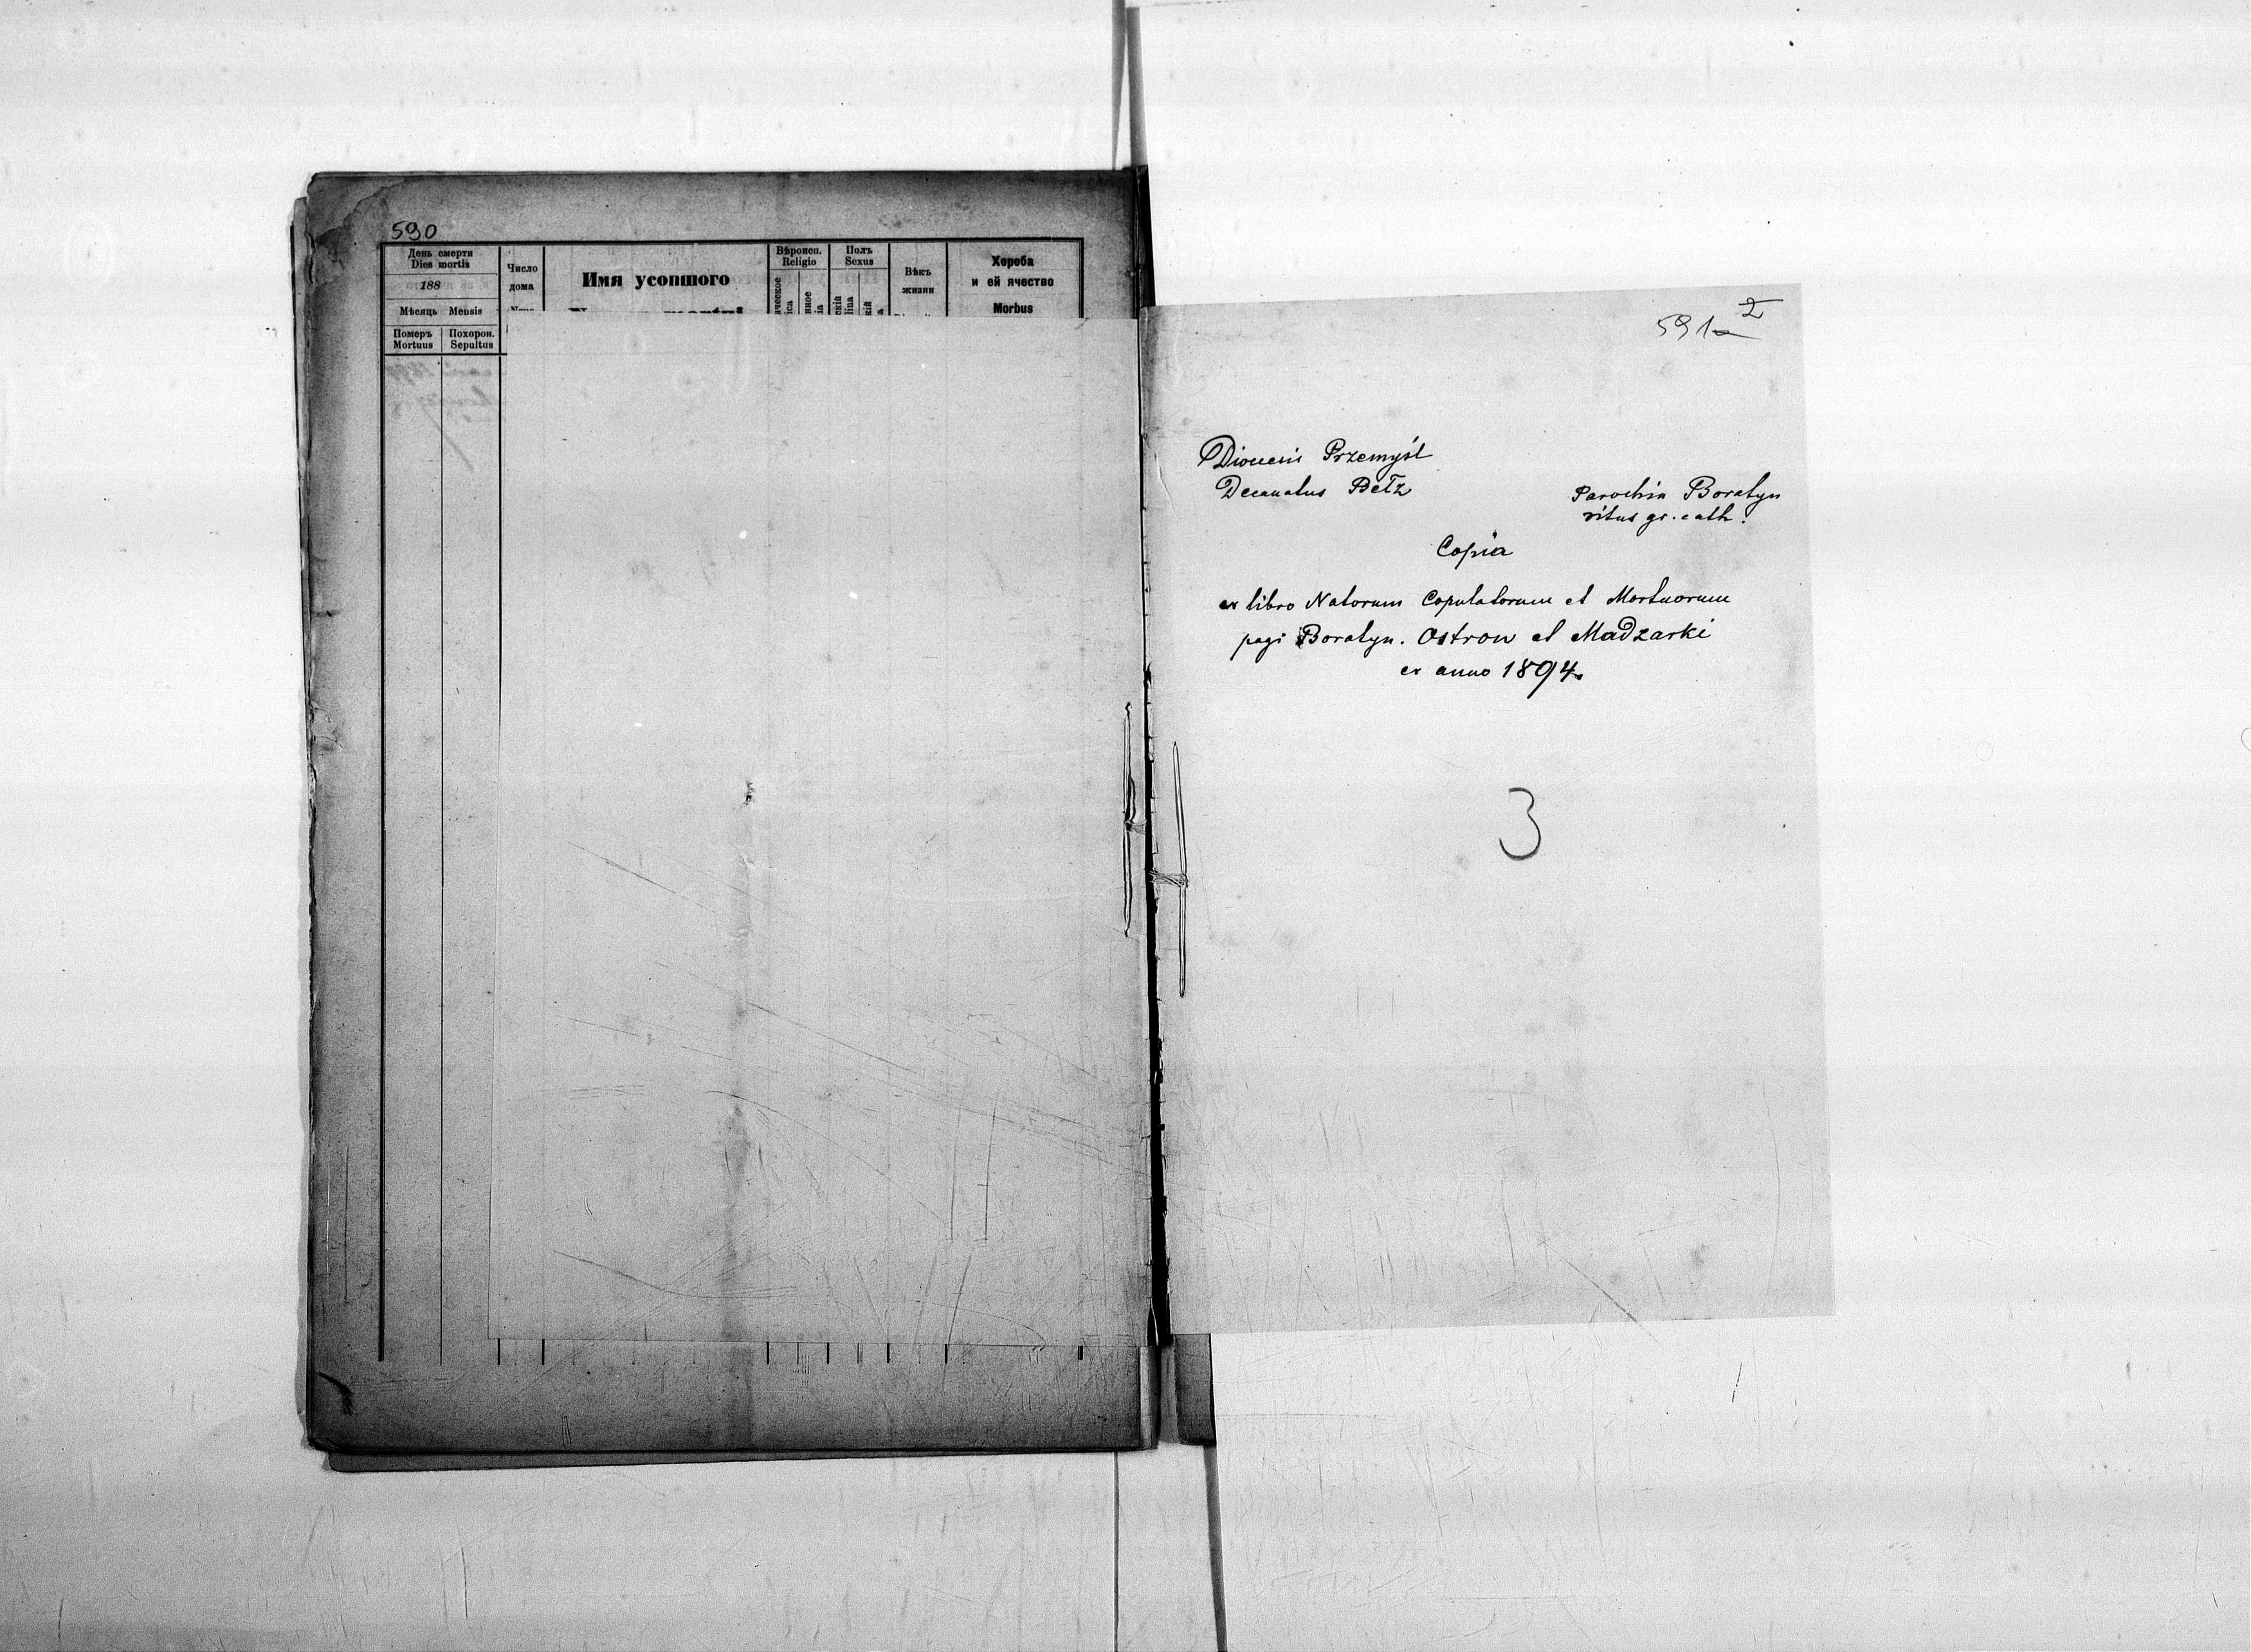 590
День смерти
Dies mortis
188
Мѣсяць Mensis
Померъ Похорон.
Mortuus Sepultus
Число
дома
Имя усопшого
Вѣроисп.
Religio
Полъ
Sexus
Вѣкъ
жизни
Хороба
и ей ячество
Morbus
591 2
Diocesis Przemyśl
Decanatus Bełz
Parochia Boratyn
ritus gr. cath.
Copia
ex libro Natorum Copulatorum et Mortuorum
pagi Boratyn. Ostrow et Madzarki
ex anno 1894.
3